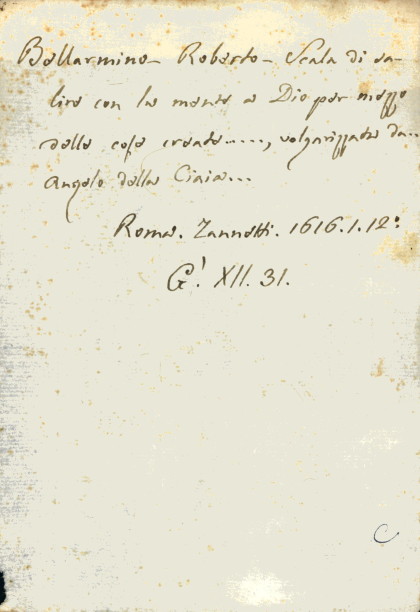 Bellarmino Roberto - Scala di sa-
lire con la mente a Dio per mezzo
delle cose create....., volgarizzata da...
Angelo della Ciaia...
Roma. Zannetti. 1616.1.12°
G' XII. 31.
C